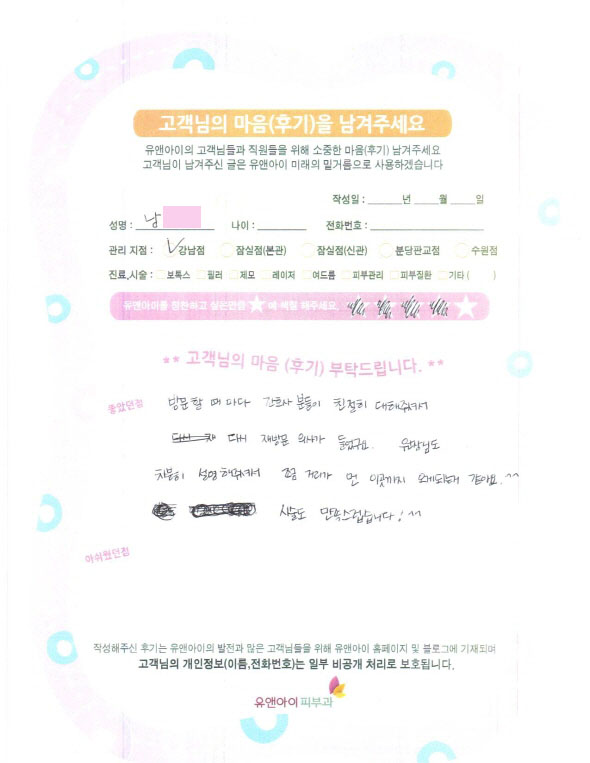 고객님의 마음(후기)을 남겨주세요
유앤아이의 고객님들과 직원들을 위해 소중한 마음(후기) 남겨주세요
고객님이 남겨주신 글은 유앤아이 미래의 밑거름으로 사용하겠습니다
작성일 : ______년 _____월 _____일
성명 : 남 나이 : 전화번호 :
관리 지점 : ✓강남점 잠실점(본관) 잠실점(신관) 분당판교점 수원점
진료,시술 : 보톡스 필러 제모 레이저 여드름 피부관리 피부질환 기타 ( )
유앤아이를 칭찬하고 싶은만큼 ★에 색칠 해주세요
** 고객님의 마음 (후기) 부탁드립니다. **
좋았던점
방문할 때 마다 간호사 분들이 친절히 대해줘서
다시 재방문 의사가 들었구요. 원장님도
차분히 설명해줘서 조금 거리가 먼 이곳까지 오게되는거 같아요.^^
시술도 만족스럽습니다! ^^
아쉬웠던점
작성해주신 후기는 유앤아이의 발전과 많은 고객님들을 위해 유앤아이 홈페이지 및 블로그에 기재되며
고객님의 개인정보(이름,전화번호)는 일부 비공개 처리로 보호됩니다.
유앤아이피부과